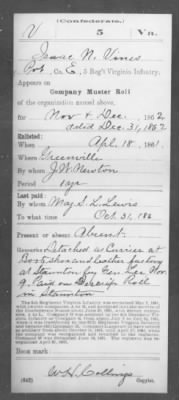 (Confederate.)
V 5 Va.
Isaac N. Vines
Pvt Co. E, 5 Reg't Virginia Infantry.
Appears on
Company Muster Roll
of the organization named above,
for Nov & Dec., 1862
dated Dec. 31, 1862
Enlisted:
When April 18, 1861.
Where Greenville
By whom J. W. Newton
Period 1 yr
Last paid:
By whom Maj. S. L. Lewis
To what time Oct 31, 186
Present or absent Absent.
Remarks: Detached as Currier at
Boot, shoe and leather factory
at Staunton by Gen. Lee Nov.
9. Paid on Descrip Roll
in Staunton
Book mark:
W H Collings
(642) Copyist.